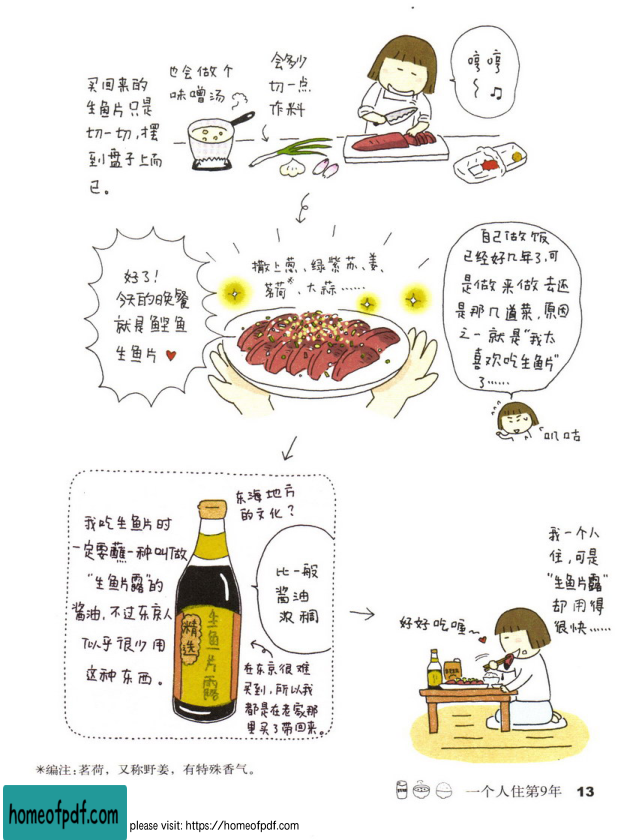 买回来的
生鱼片只是
切一切,摆
到盘子上而
已。
也会做个
味噌汤
会多少
切一点
作料
哼哼
~♫
好了!
今天的晚餐
就是鲣鱼
生鱼片♥
撒上葱、绿紫苏、姜、
茗荷*、大蒜……
自己做饭
已经好几年了,可
是做来做去还
是那几道菜,原因
之一就是“我太
喜欢吃生鱼片”
了……
叽咕
我吃生鱼片时
一定要蘸一种叫做
“生鱼片露”的
酱油,不过东京人
似乎很少用
这种东西。
东海地方
的文化?
比一般
酱油
浓稠
精选
生鱼片露
在东京很难
买到,所以我
都是在老家那
里买了带回来。
我一个人
住,可是
“生鱼片露”
却用得
很快……
好好吃喔~♥
*编注:茗荷,又称野姜,有特殊香气。
一个人住第9年 13
homeofpdf.com
please visit: https://homeofpdf.com